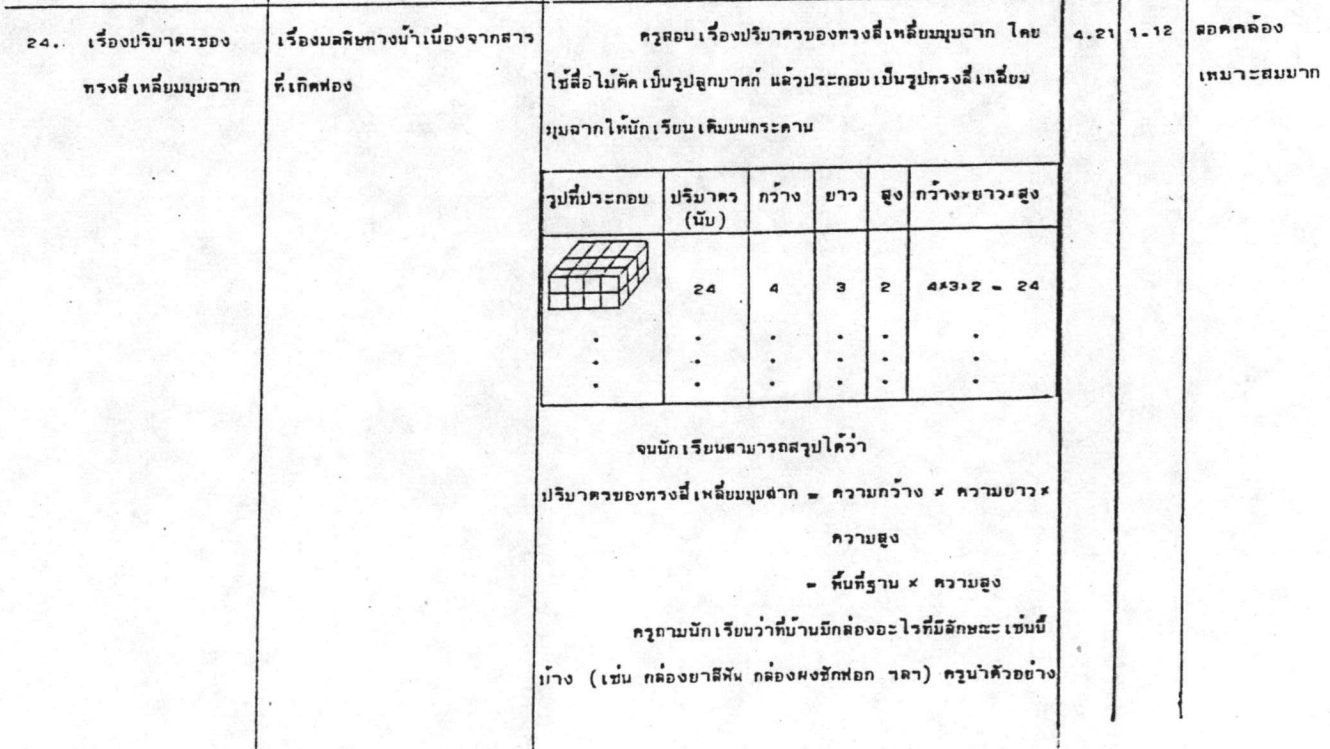 24. เรื่องปริมาตรของ
ทรงสี่เหลี่ยมมุมฉาก
เรื่องมลพิษทางน้ำเนื่องจากสาร
ที่เกิดฟอง
ครูสอนเรื่องปริมาตรของทรงสี่เหลี่ยมมุมฉาก โดย
ใช้สื่อไม้ตัดเป็นรูปลูกบาศก์ แล้วประกอบเป็นรูปทรงสี่เหลี่ยม
มุมฉากให้นักเรียนเติมบนกระดาน
รูปที่ประกอบ ปริมาตร กว้าง ยาว สูง กว้าง×ยาว×สูง
(นับ)
24 4 3 2 4×3×2 = 24
จนนักเรียนสามารถสรุปได้ว่า
ปริมาตรของทรงสี่เหลี่ยมมุมฉาก = ความกว้าง × ความยาว×
ความสูง
= พื้นที่ฐาน × ความสูง
ครูถามนักเรียนว่าที่บ้านมีกล่องอะไรที่มีลักษณะเช่นนี้
บ้าง (เช่น กล่องยาสีฟัน กล่องผงซักฟอก ฯลฯ) ครูนำตัวอย่าง
4.21
1.12
สอดคล้อง
เหมาะสมมาก